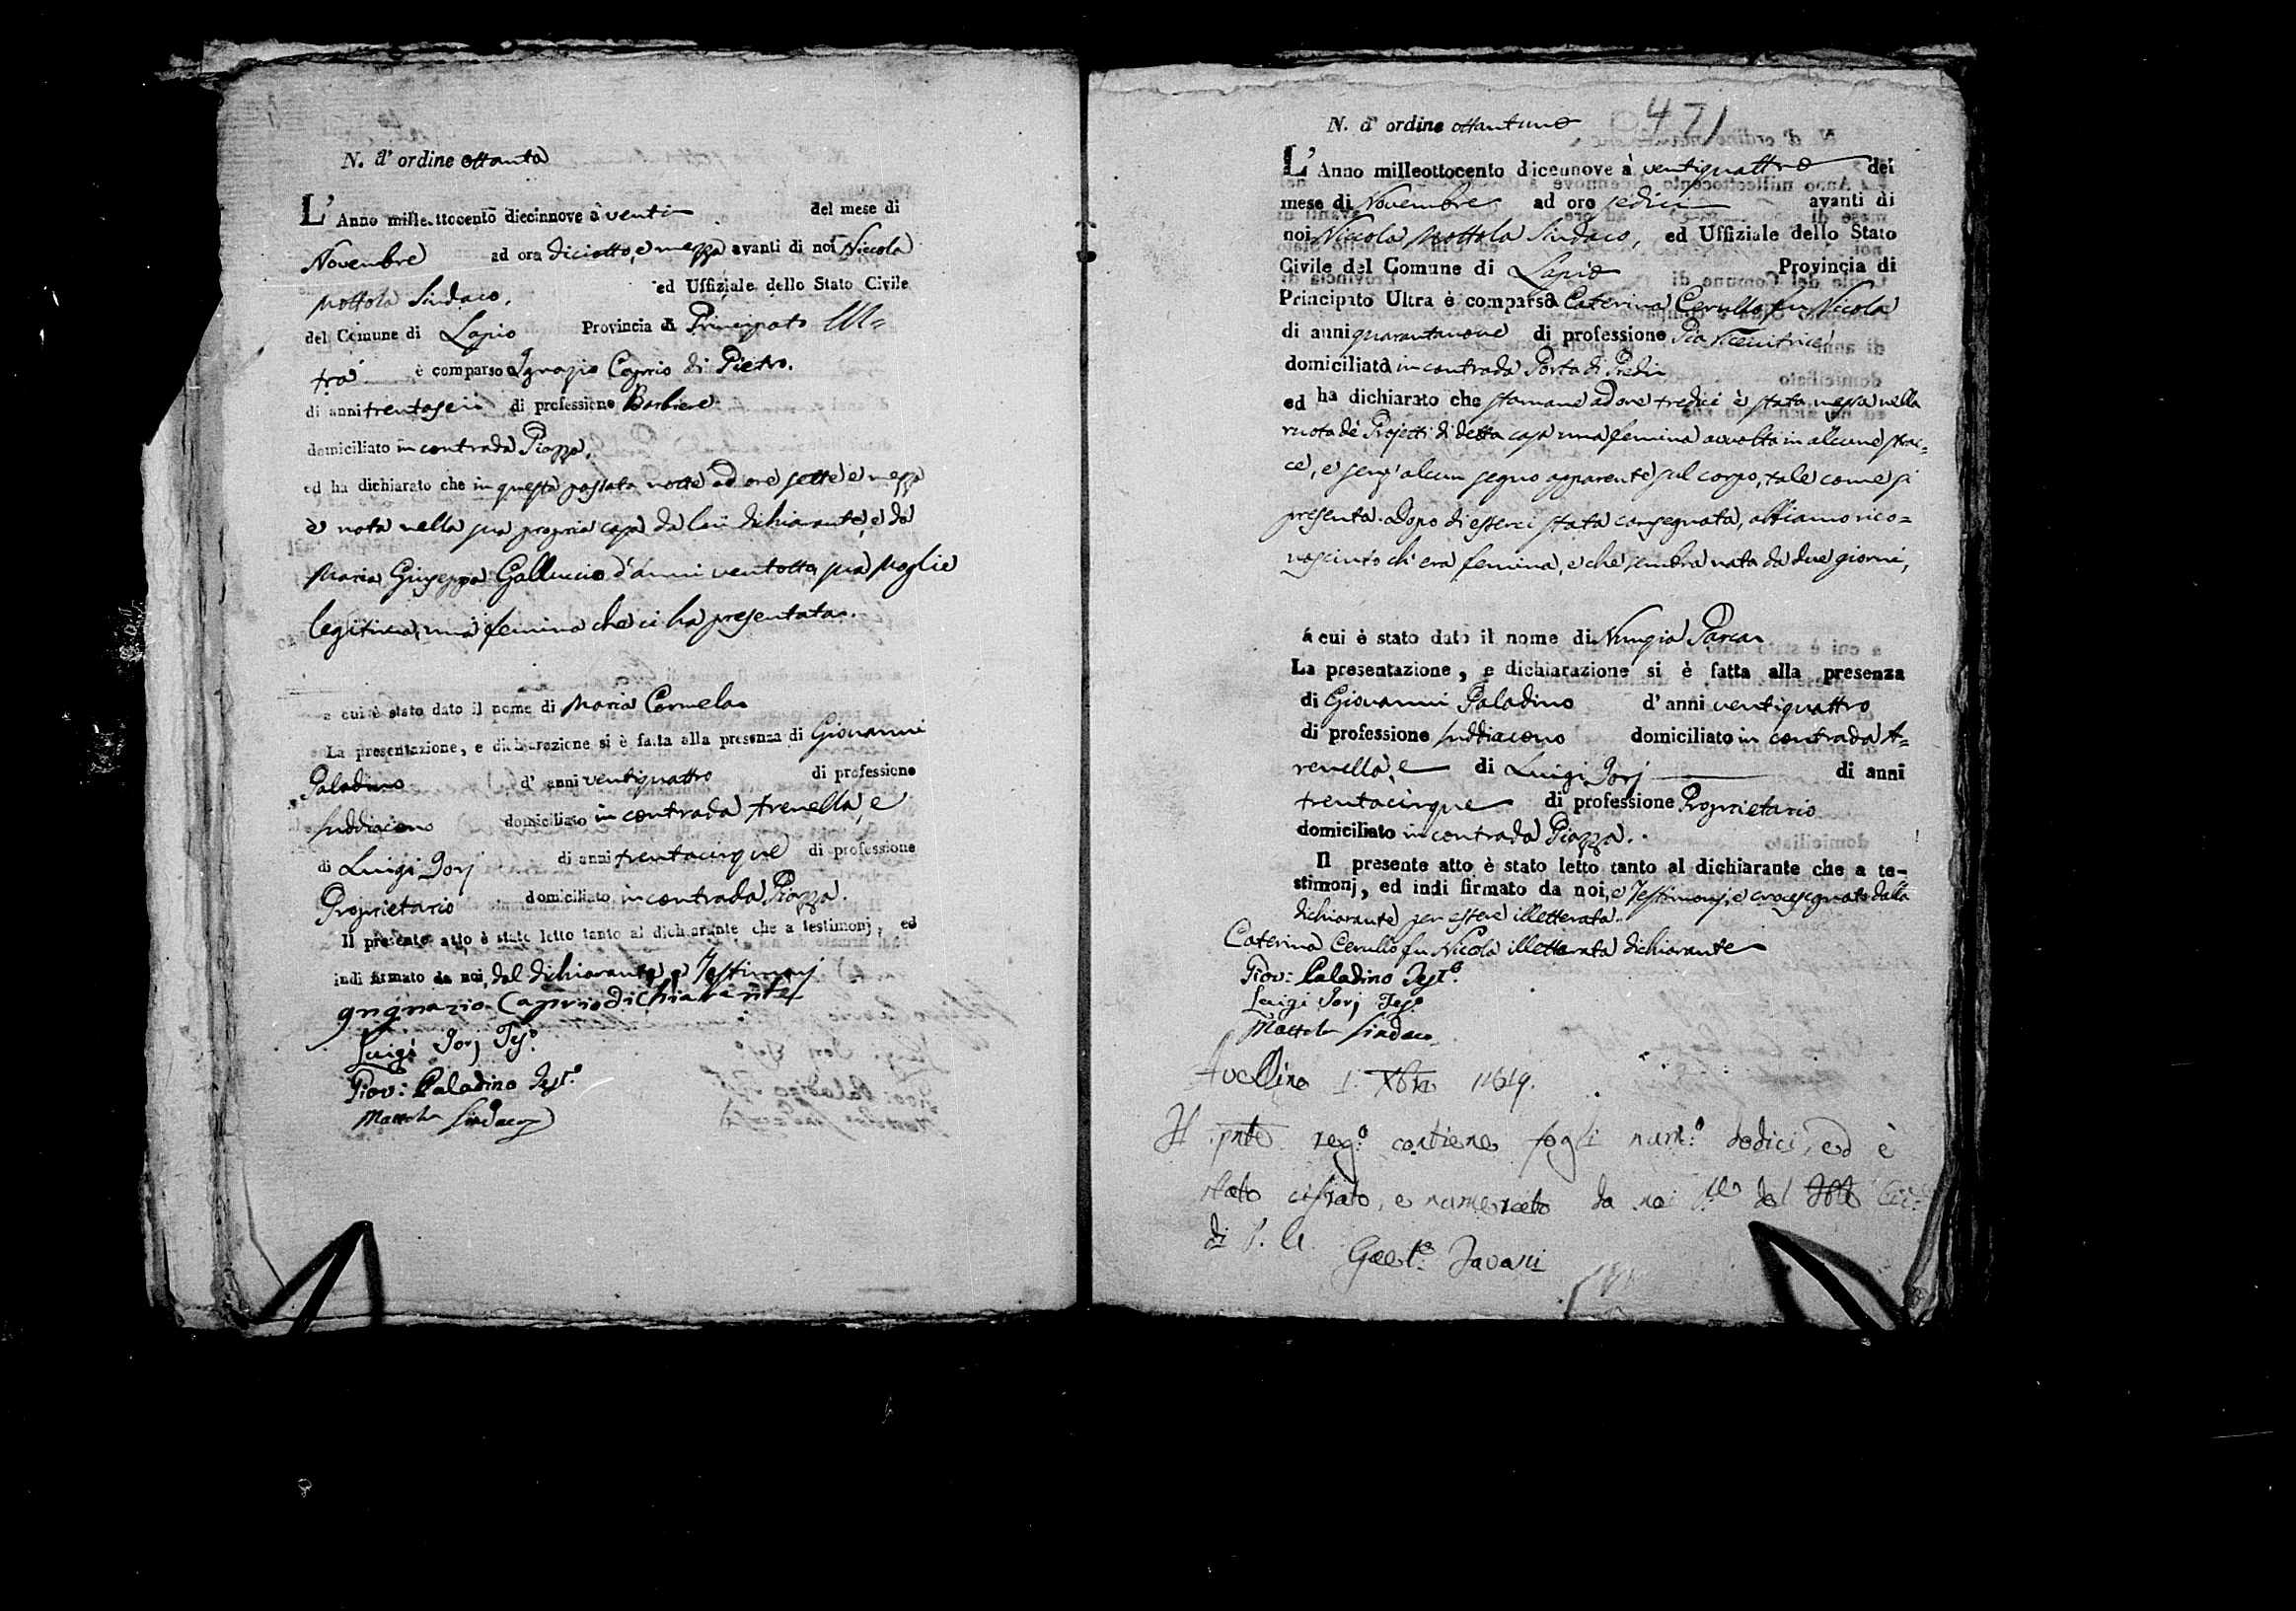 N. d' ordine ottanta
L' Anno milleottocento diecinnove à venti del mese di
Novembre ad ora diciotto, e mezza avanti di noi Niccola
Mottola Sindaco, ed Uffiziale dello Stato Civile
del Comune di Lapio Provincia di Principato Ul=
tra è comparso Ignazio Caprio di Pietro.
di anni trentasei di professione Barbiere
domiciliato in contrada Piazza,
ed ha dichiarato che in questa passata notte ad ore sette e mezza
è nata nella sua propria casa da lui dichiarante, e da
Maria Giuseppa Galluccio d'anni ventotto sua moglie
legitima, una femina che ci ha presentata.
a cui è stato dato il nome di Maria Carmela
La presentazione, e dichiarazione si è fatta alla presenza di Giovanni
Paladino d' anni ventiquattro di professione
suddiacono domiciliato in contrada Arenella, e
di Luigi Jorj di anni trentacinque di professione
Proprietario domiciliato in contrada Piazza.
Il presente atto è stato letto tanto al dichiarante che a testimonj, ed
indi firmato da noi, dal dichiarante, e Testimonj
Gnignazio Caprio dichiarante
Luigi Jorj Tes.º
Giov: Paladino Test.º
Mottola Sindaco
N. d' ordine ottantuno 471
L' Anno milleottocento dicennove à ventiquattro del
mese di Novembre ad ore sedici avanti di
noi Niccola Mottola Sindaco, ed Uffiziale dello Stato
Civile del Comune di Lapio Provincia di
Principato Ultra è comparsa Caterina Cerullo fu Nicola
di anni quarantanove di professione Pia Ricevitrice
domiciliata in contrada Porta di Predi
ed ha dichiarato che stamane ad ore tredici è stata messa nella
ruota de' Projetti di detta casa una femina avvolta in alcune strac=
ce, e senz'alcun segno apparente sul corpo, tale come si
presenta. Dopo di esserci stata consegnata, abbiamo rico=
nosciuto ch'era femina, e che sembra nata da due giorni,
à cui è stato dato il nome di Nunzia Parca
La presentazione, e dichiarazione si è fatta alla presenza
di Giovanni Paladino d' anni ventiquattro
di professione suddiacono domiciliato in contrada A=
renella, e di Luigi Jorj di anni
trentacinque di professione Proprietario
domiciliato in contrada Piazza.
Il presente atto è stato letto tanto al dichiarante che a te-
stimonj, ed indi firmato da noi, e Testimonj, e crocesegnato dalla
dichiarante per essere illetterata.
Caterina Cerullo fu Nicola illetterata dichiarante
Giov: Paladino Test.º
Luigi Jorj Tes.º
Mottola Sindaco
Avellino 1. Xbre 1819.
Il pnte reg.º contiene fogli num.º dodici, ed è
stato cifrato, e numerato da noi del Civ.
di P. U.
Gaet.º